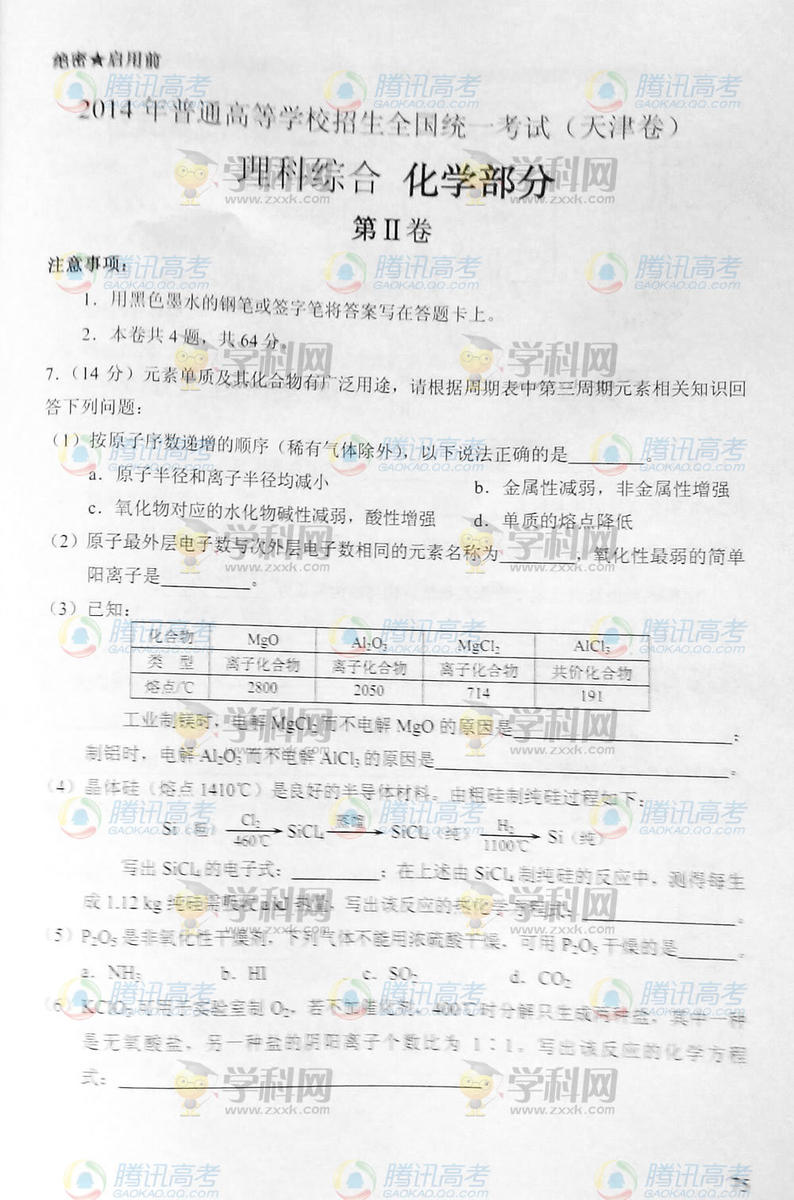 绝密★启用前
2014年普通高等学校招生全国统一考试（天津卷）
理科综合 化学部分
第Ⅱ卷
注意事项：
1．用黑色墨水的钢笔或签字笔将答案写在答题卡上。
2．本卷共4题，共64分。
7.（14分）元素单质及其化合物有广泛用途，请根据周期表中第三周期元素相关知识回
答下列问题：
（1）按原子序数递增的顺序（稀有气体除外），以下说法正确的是________。
a．原子半径和离子半径均减小 b．金属性减弱，非金属性增强
c．氧化物对应的水化物碱性减弱，酸性增强 d．单质的熔点降低
（2）原子最外层电子数与次外层电子数相同的元素名称为________，氧化性最弱的简单
阳离子是________。
（3）已知：
化合物 MgO Al₂O₃ MgCl₂ AlCl₃
类 型 离子化合物 离子化合物 离子化合物 共价化合物
熔点/℃ 2800 2050 714 191
工业制镁时，电解MgCl₂而不电解MgO的原因是________；
制铝时，电解Al₂O₃而不电解AlCl₃的原因是________。
（4）晶体硅（熔点1410℃）是良好的半导体材料。由粗硅制纯硅过程如下：
Cl₂ 蒸馏 H₂
Si（粗） SiCl₄ SiCl₄（纯） Si（纯）
460℃ 1100℃
写出SiCl₄的电子式：________；在上述由SiCl₄制纯硅的反应中，测得每生
成1.12 kg纯硅需吸收a kJ热量，写出该反应的热化学方程式：________。
（5）P₂O₅是非氧化性干燥剂，下列气体不能用浓硫酸干燥，可用P₂O₅干燥的是________。
a．NH₃ b．HI c．SO₂ d．CO₂
（6）KClO₃可用于实验室制O₂，若不加催化剂，400℃时分解只生成两种盐，其中一种
是无氧酸盐，另一种盐的阴阳离子个数比为1∶1。写出该反应的化学方程
式：________
75
腾讯高考
GAOKAO.QQ.COM
学科网
www.zxxk.com